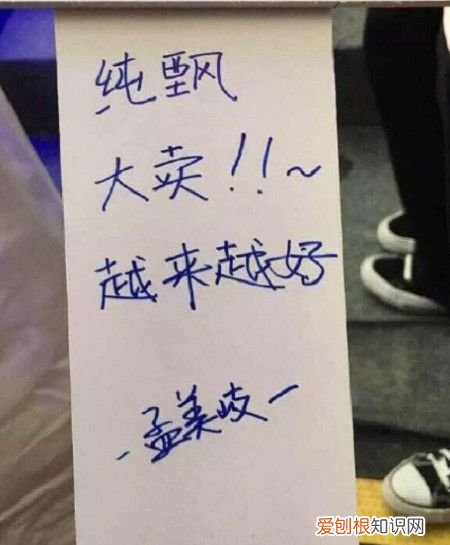 纯飘
大卖!!~
越来越好
孟美岐
爱刨根知识网
www.baogen.com